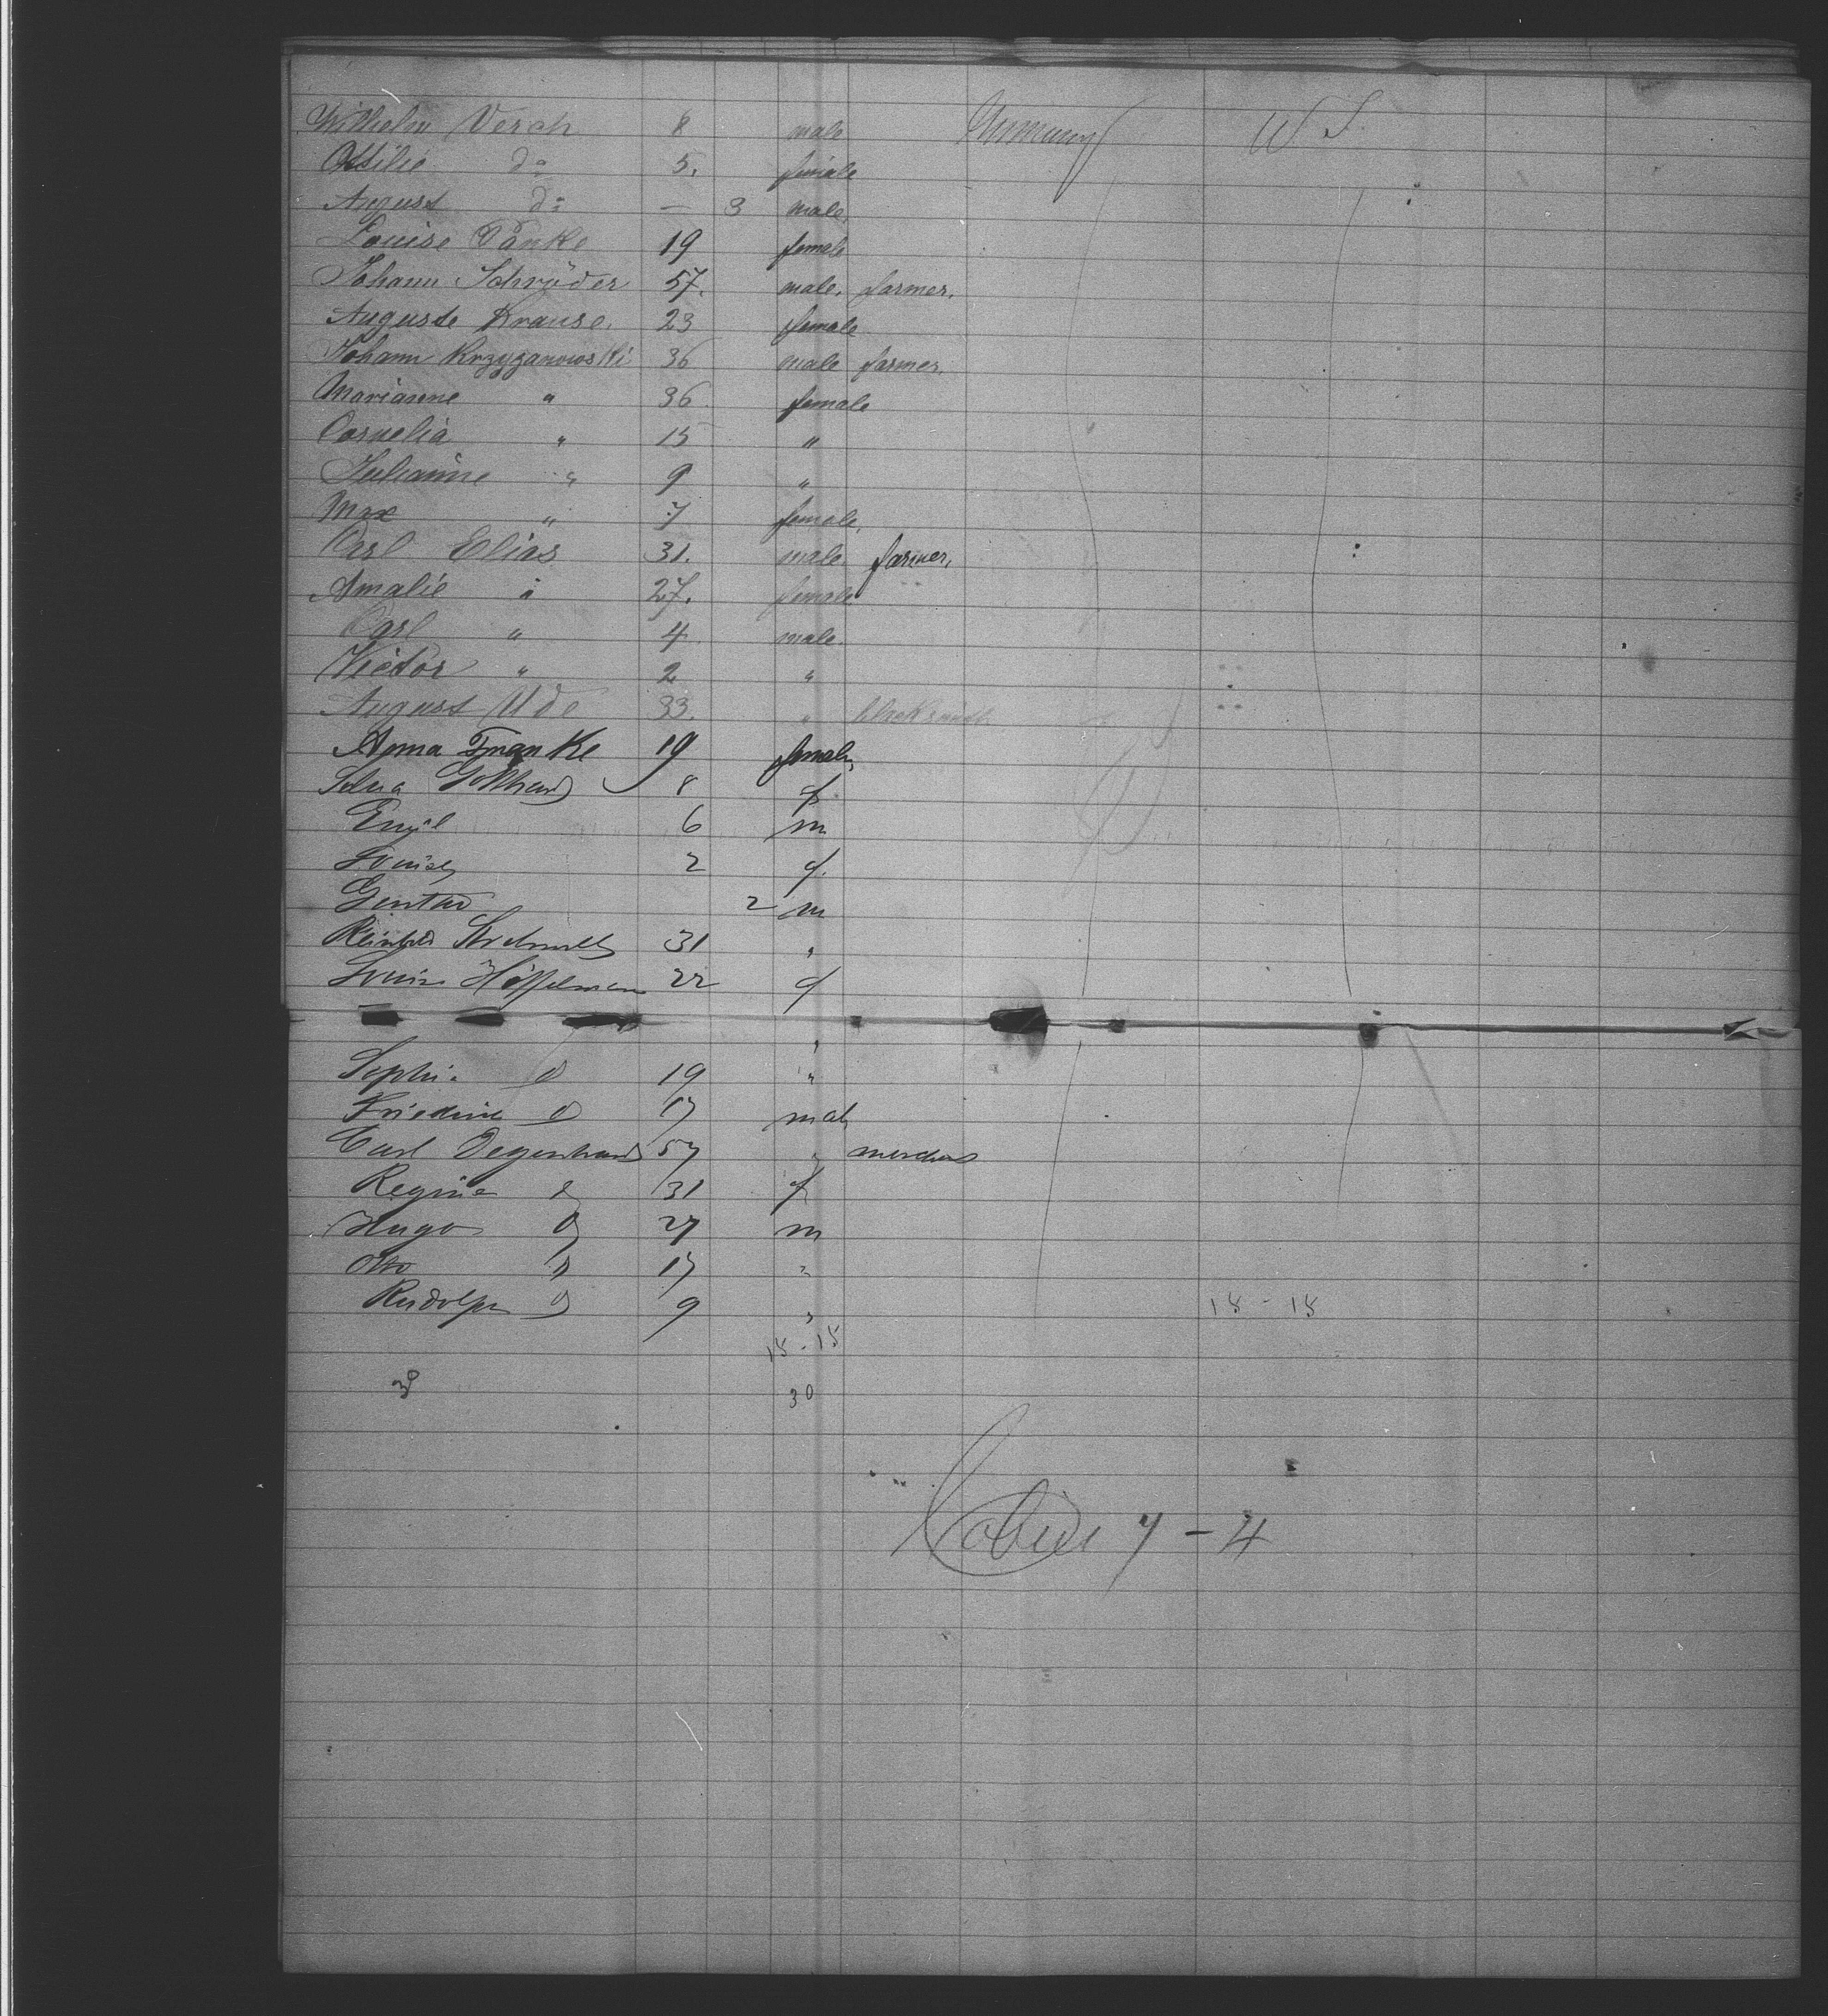 Wilhelm Verch 8 male Germany U S
Ottilie do 5. female
August do — 3 male.
Louise Panke 19 female
Johann Schröder 57. male. farmer.
Auguste Krause. 23 female
Johann Krzyzanowski 36 male farmer.
Marianne " 36 female
Cornelia " 15 "
Julianne " 9 "
Max " 7 female.
Carl Elias 31. male. farmer,
Amalie " 27. female
Carl " 4. male.
Victor " 2 "
August Ude 33. " blacksmith
Anna Franke 19 female,
Selma Gotthard 8 f.
Emil 6 m
Louise 2 f.
Gustav 2 m
Reinhold 31 "
Louise Höffelmann 22 f
"
Sophie d 19 "
Friedrich d 17 male
Carl Degenhard 57 "
Regina d 31 f
Hugo d 27 m
Otto d 17 "
Rudolph d 9 " 15 - 15
15 - 15
30 30
Cabin 7 - 4